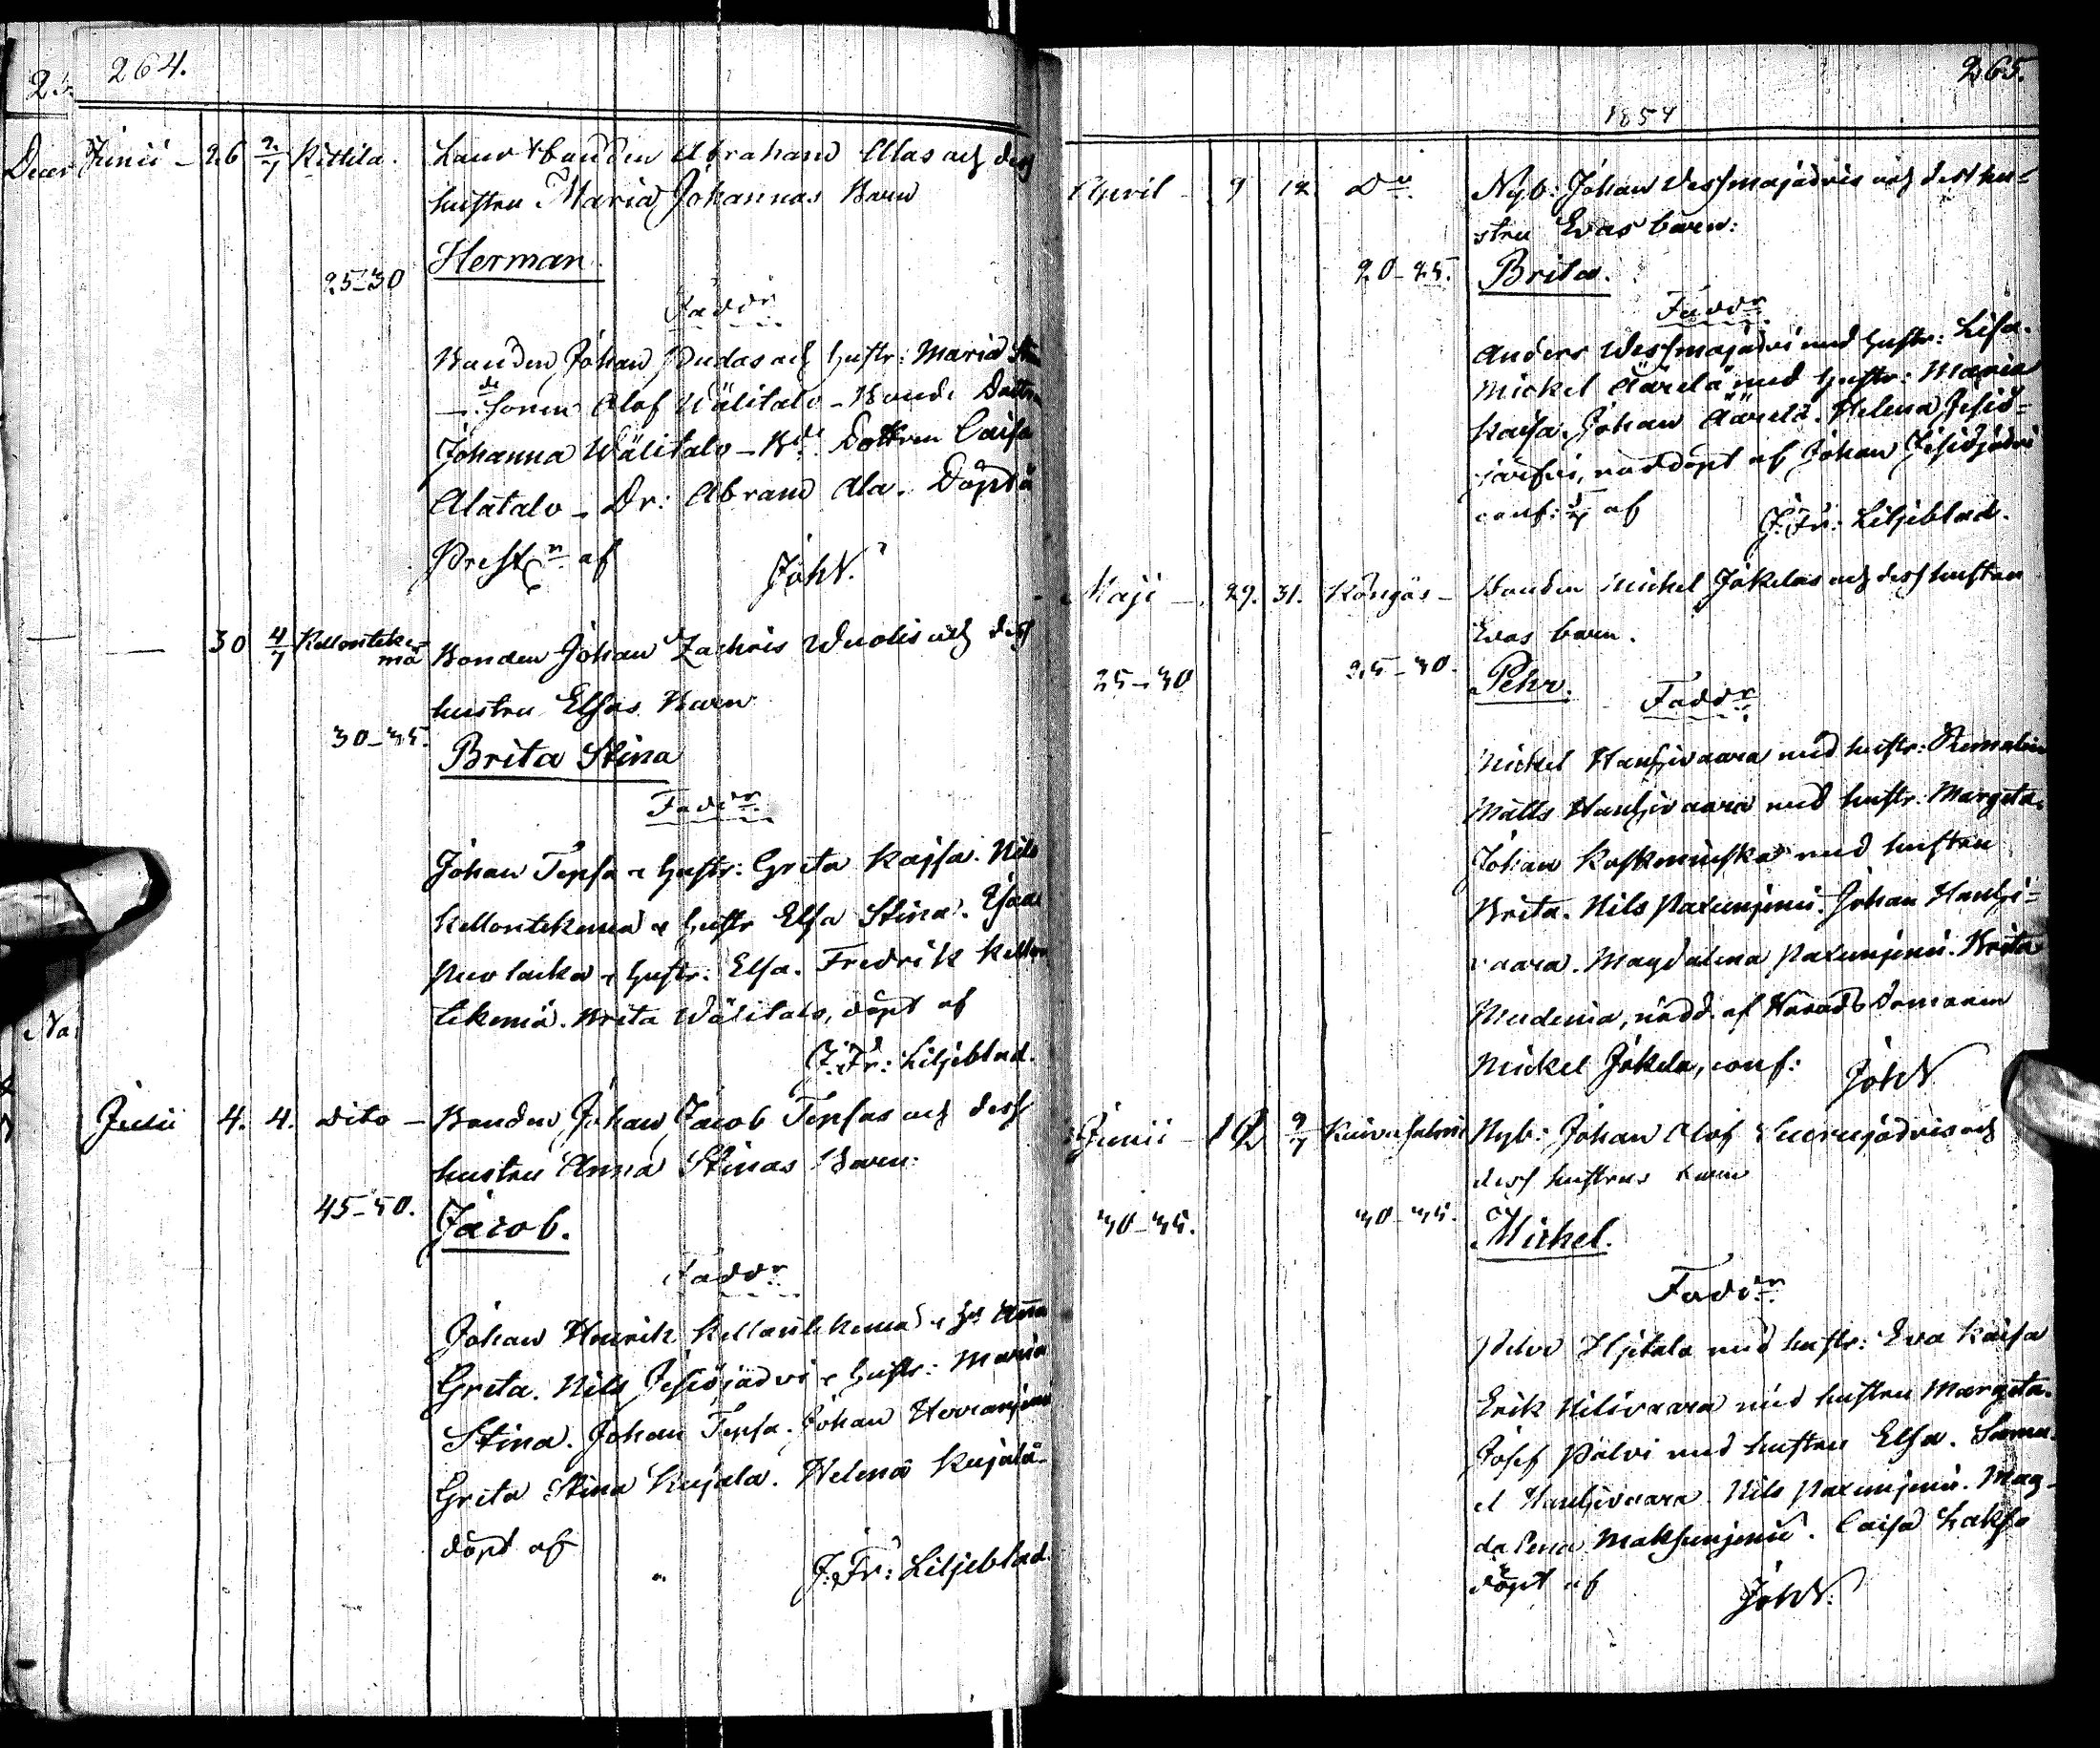 264.
Junii - 26 2/7 Kittila. Landtbonden Abraham Alas och dess
hustru Maria Johannas Barn
25-30 Herman.
Faddr
Bonden Johan Pudas och hustr: Maria
Sonen Olof Wälitalo - Bonde Dottr
Johanna Wälitalo - Bde Dottren Caisa
Alatalo - Dr: Abram Ala. Döpt å
Prestgn af JohW.
30 4/7 Kellonteke=
mä Bonden Johan Zachris Wuolis och dess
hustru Elsas Barn
30-35. Brita Stina
Faddr
Johan Tepsa & hustr: Greta Kajsa. Nils
Kellontekemä & hustr Elsa Stina. Isaac
& hustr: Elsa. Fredrik Kellon
tekemä. Brita Wälitalo, döpt af
J. Fr: Liljeblad.
Julii 4. 4. Dito - Bonden Johan Jacob Tepsas och dess
hustru Anna Stinas Barn:
45-50. Jacob.
Faddr
Johan Henrik Kellontekemä & hu Anna
Greta. Nils Jesiöjädvi & hustr: Maria
Stina. Johan Tepsa. Johan
Greta Stina Kujala. Helena Kujala
döpt af
J: Fr: Liljeblad.
265.
1854
April - 9 12 Do Nyb: Johan Vessmajädvis och dess hu=
stru Evas barn:
20-25. Brita.
Faddr
Anders Wessmajädvi med hustr: Lisa.
Mickel Äärelä med hustr: Maria
Kaisa. Johan Äärelä. Helena Jesiö=
järfvi, nöddöpt af Johan Jesiöjädvi
conf: af J. Fr: Liljeblad.
Maji - 29. 31. Köngäs - Bonden Michel Jokelas och dess hustru
Evas barn.
25-30 25-30. Pehr. Faddr
Michel Hanhivaara med hustr:
Matts Hanhivaara med hustr: Margeta.
Johan Koskenniska med hustru
Brita. Nils Paxunjemi. Johan Hanhi=
vaara. Magdalena Paxunjemi. Brita
af Häradsdomaren
Mickel Jokela, conf: JohW
Junii - 2/7 Nyb: Johan Olof och
dess hustrus barn
30-35. 30-35. Michel.
Faddr
Petter Hjetala med hustr: Eva Kaisa
Erik Nilivaara med hustru Margeta.
Josef Pälvi med hustru Elsa. Samu
el Hanhivaara. Nils Paxunjemi. Mag-
dalena Maksunjemi. Caisa Lakso
döpt af JohW.